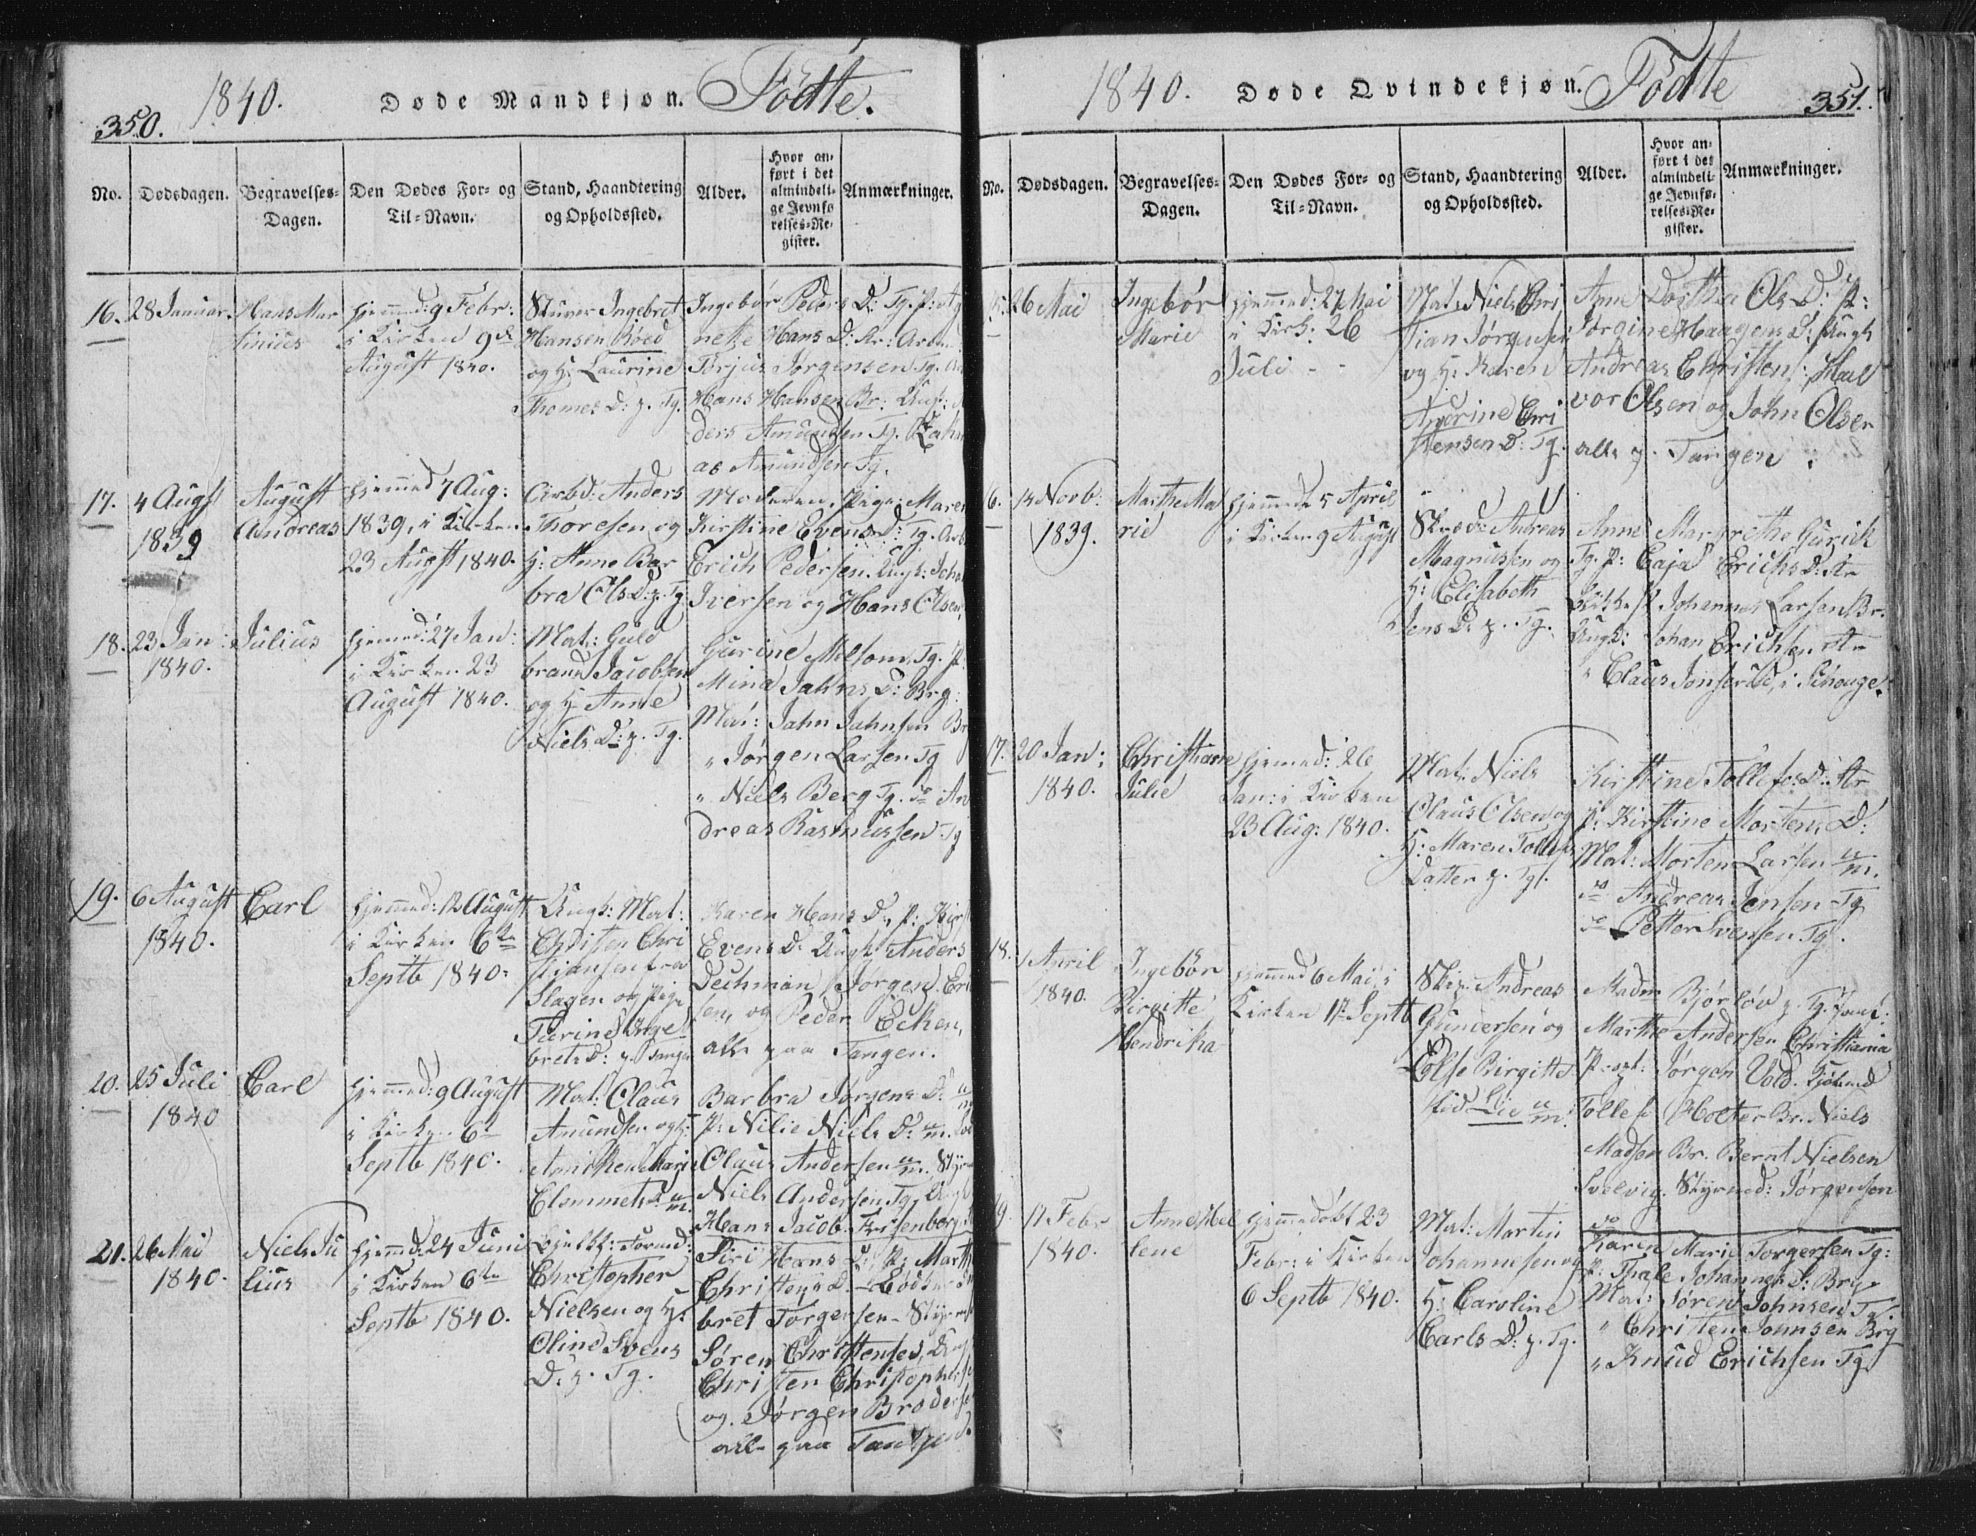 350. 1840. Døde Mandkjøn. Födte.
No. Dødsdagen. Begravelses-Dagen. Den Dødes For- og Til-Navn. Stand, Haandtering og Opholdssted. Alder. Hvor anført i det almindelige Jevnførelses-Register. Anmærkninger.
16. 28 Januar. Hans Mar
tinius
hjemmed: 9 Febr:
i Kirken 9de
August 1840.
Stuver Ingebret
Hansen Röed
og H: Laurine
Thomes D: p. Tg.
Ingebor Peders D: Tg. P:
nette Hans D: Ar:
Torjus Jörgensen Tg.
Hans Hansen Br: Ungk:
ders Amundsen Tg.
as Amundsen Tg.
17. 4 Augst
1839
August
Andreas
hjemmed 7 Aug:
1839, i Kirken
23 Augst 1840.
Arbd: Anders
Thoresen og
H: Anne Bar
bra Ols D: p. Tg.
Moderen, Pige: Maren
Kirstine Evens D: Tg. Arb
Erich Pedersen. Ungk:
Iversen og Hans Olsen
18. 23 Jan:
1840.
Julius
hjemmed: 27 Jan:
i Kirken 23
August 1840.
Mat: Guld
brand Jacobsen
og H Anne
Niels D: p. Tg.
Gurine Melsom, Tg. P:
Mina Jahns D: Brg:
Mat: Jahn Jahnsen Br
" Jörgen Larsen Tg
" Niels Berg Tg. do An
dreas Rasmussen Tg
19. 6 August
1840.
Carl
hjemmed: 12 August
i Kirken 6te
Septb 1840.
Ungk: Mat:
Christen Chri
stiansen fra
Slagen og Pige
Turine Inge
brets D: p. Tangen
Karen Hans D:, P: Kirst
Evens D: Ungk: Anders
Dechman, Jörgen Er
sen, og Peder Ecken,
alle paa Tangen.
20. 25 Juli
1840
Carl
hjemmed: 9 August
i Kirken 6te
Septb 1840.
Mat: Claus
Amundsen og H:
Anniken Marie
Clemmets D:
Barbra Jörgens D:
P: Nilie Niels D:
Claus Andersen
Niels Andersen Tg,
Hans Jacob
21. 26 Mai
1840.
Niels Ju
lius
hjemmd: 24 Juni
i Kirken 6te
Septb 1840.
Christopher
Nielsen og H:
Oline Svens
D: p. Tg.
Siri Hans D:, P: Marth
Christens D.
bret Torgersen - Styrm
Sören Christensen, Ungk
Christen Christophers
og Jörgen Broders
alle paa Tangen.
1840. Døde Qvindekjøn. Födte 351.
No. Dødsdagen. Begravelses-Dagen. Den Dødes For- og Til-Navn. Stand, Haandtering og Opholdssted. Alder. Hvor anført i det almindelige Jevnførelses-Register. Anmærkninger.
26 Mai
Ingebör
Marie
hjemmed: 27 Mai
i Kirk: 26
Juli - -
Mat: Niels Chri
stian Jörgensen
og H: Karen
Andrine Chri
stensen D: Tg.
Anne Dorthea Ols D: P:
Jörgine Haagens D: Ungk
Andreas Christens: Hal
vor Olsen og John Olsen
alle p. Tangen.
6. 14 Novb:
1839.
Marthe Ma
rie
hjemmed: 5 April
i Kirken 9 August
Andreas
Magnussen og
H: Elisabeth
Jens D: p. Tg.
Anne Margrethe Gurich
Tg. P: Caja Erichs D: Ar
Johannes Larsen Br.
Ungk: Johan Erichsen Ar
" Claus Jonsrud,
17. 20 Jan:
1840.
Christiane
Julie
hjemmed: 26
Jan: i Kirken
23 Aug: 1840.
Mat: Niels
Claus Olsen og
H: Maren Tollefs
Datter p. Tg.
Kirstine Tollefs: D: Ar
P: Kirstine Mortens D:
Mat: Morten Larsen
do Andreas Jensen Tg
do Petter Svensen Tg.
18. 1 April
1840.
Ingebör
Birgitte
Hendrika
hjemmed 6 Mai, i
Kirken 17 Septb
Skip: Andreas
Gundersen og
Else Birgitte
föd Lie
Madm Bjørlöw p. Tg.
Marthe Andersen Christiania
Jörgen Vold.
Tollef Holter Br. Niels
Madsen Br. Bernt Nielsen
Solvig. Styrmd: Jörgensen
19. 17 Febr
1840.
Anne He
lene
hjemmedöbt 23
Febr: i Kirken
6 Septb 1840.
Mat: Martin
Johannsen og
H: Caroline
Carls D: p. Tg.
Karen Marie Torgersen Tg:
P: Thale Johannes D: Brg
Mat: Sören Johnsen Tg
" Christen Johnsen Brg
" Knud Erichsen Tg